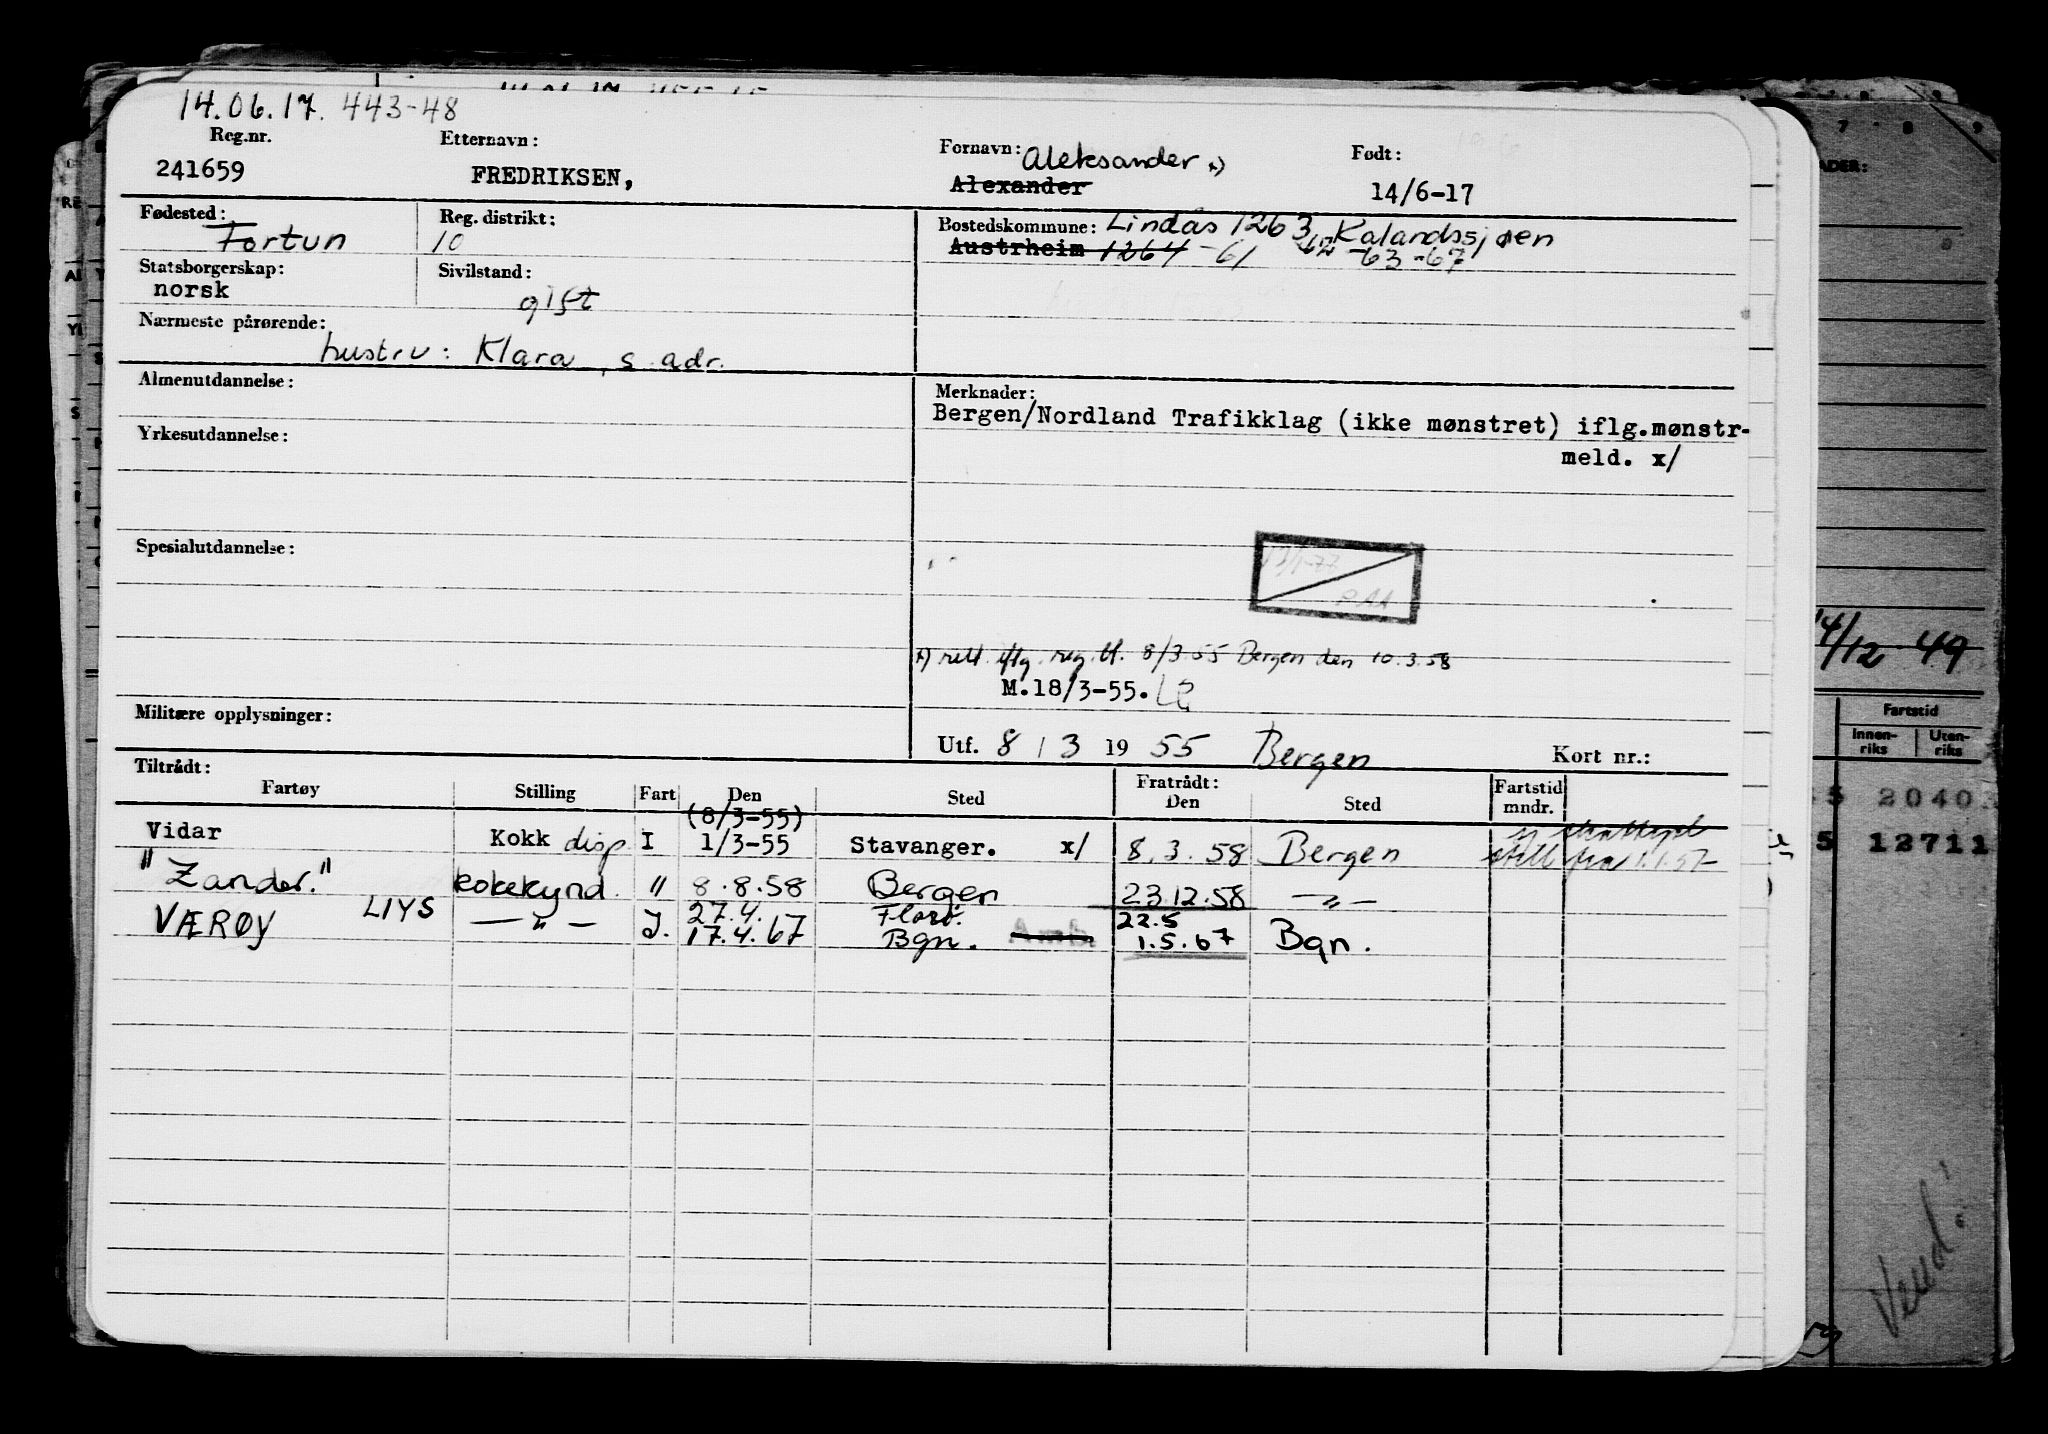 14.06.17. 443-48
Reg.nr. Etternavn: Fornavn: Aleksander x) Født:
241659 FREDRIKSEN, Alexander 14/6-17
Fødested: Reg. distrikt: Bostedskommune: Lindås 1263, Kalandssjøen
Fortun 10 Austrheim 1264 -61 62 -63 -67
Statsborgerskap: Sivilstand:
norsk gift
Nærmeste pårørende:
hustru: Klara, s. adr.
Almenutdannelse: Merknader:
Bergen/Nordland Trafikklag (ikke mønstret) iflg.mønstr-
meld. x/
Yrkesutdannelse:
Spesialutdannelse:
PAA
x) rett. iflg. reg. bl. 8/3.55 Bergen den 10.3.58
M.18/3-55.
Militære opplysninger:
Utf. 8 / 3 19 55 Bergen Kort nr.:
Tiltrådt: Fratrådt: Fartstid
Fartøy Stilling Fart Den Sted Den Sted mndr.
(8/3-55)
Vidar Kokk disp I 1/3-55 Stavanger. x/ 8.3.58 Bergen still fra 1.1.57
"Zander." kokekynd. " 8.8.58 Bergen 23.12.58 — " —
27.4. Florø. 22.5
VÆRØY LIYS — " — I. 17.4.67 Bgn. 1.5.67 Bgn.
7 8 9
ADER:
14/12 49
Fartstid
Innen-riks Uten-riks
5 2040
5 12711
Vend!